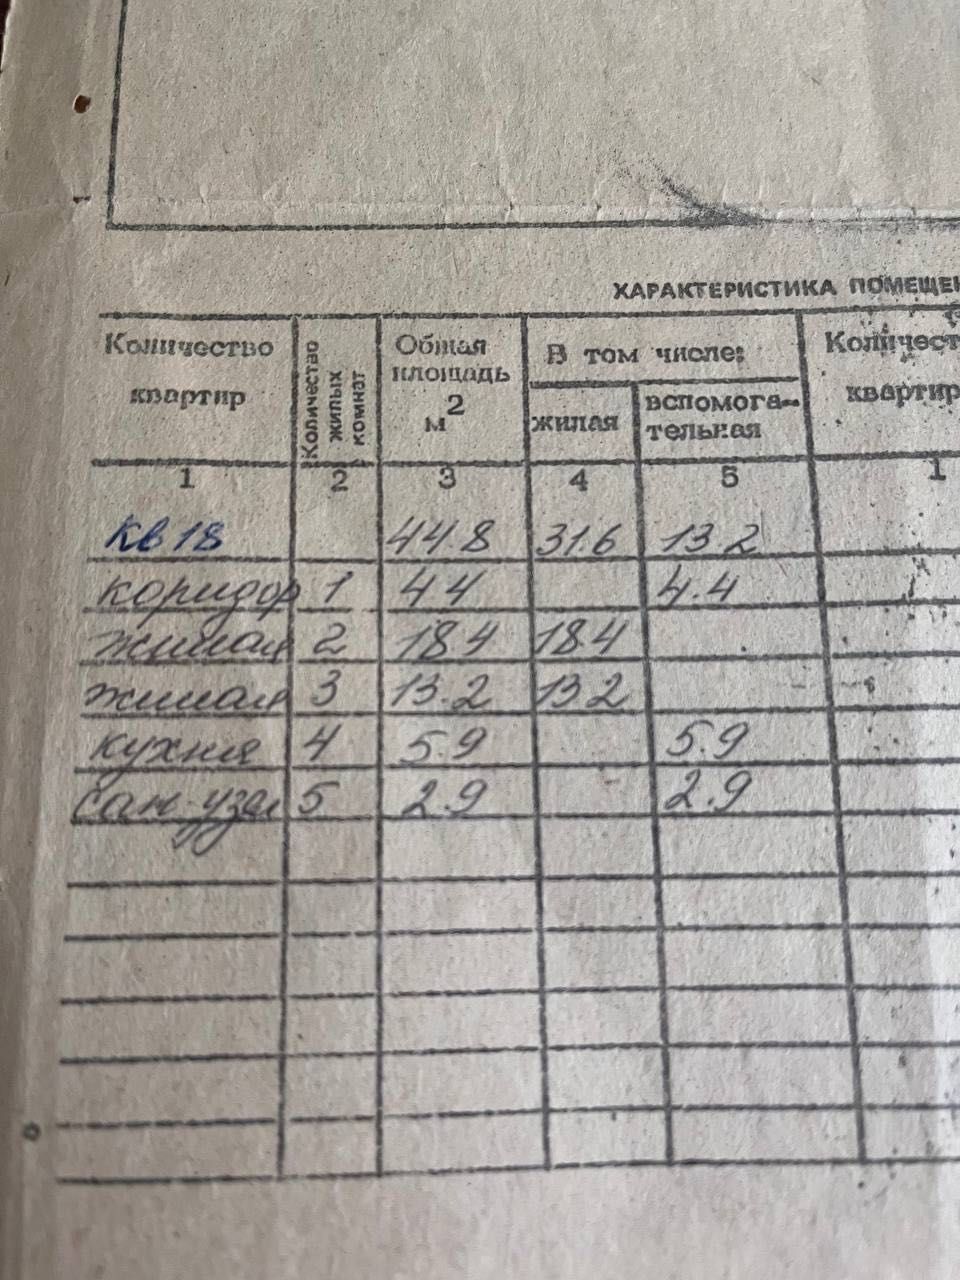 ХАРАКТЕРИСТИКА ПОМЕЩЕН
Количество квартир | Количество жилых комнат | Общая площадь м2 | В том числе: | Количест квартир
жилая | вспомога-тельная
1 | 2 | 3 | 4 | 5 | 1
Кв 18 | 44.8 | 31.6 | 13.2
коридор | 1 | 4 4 | 4.4
жилая | 2 | 18 4 | 18 4
жилая | 3 | 13.2 | 13 2
кухня | 4 | 5.9 | 5.9
сан. узел | 5 | 2.9 | 2.9